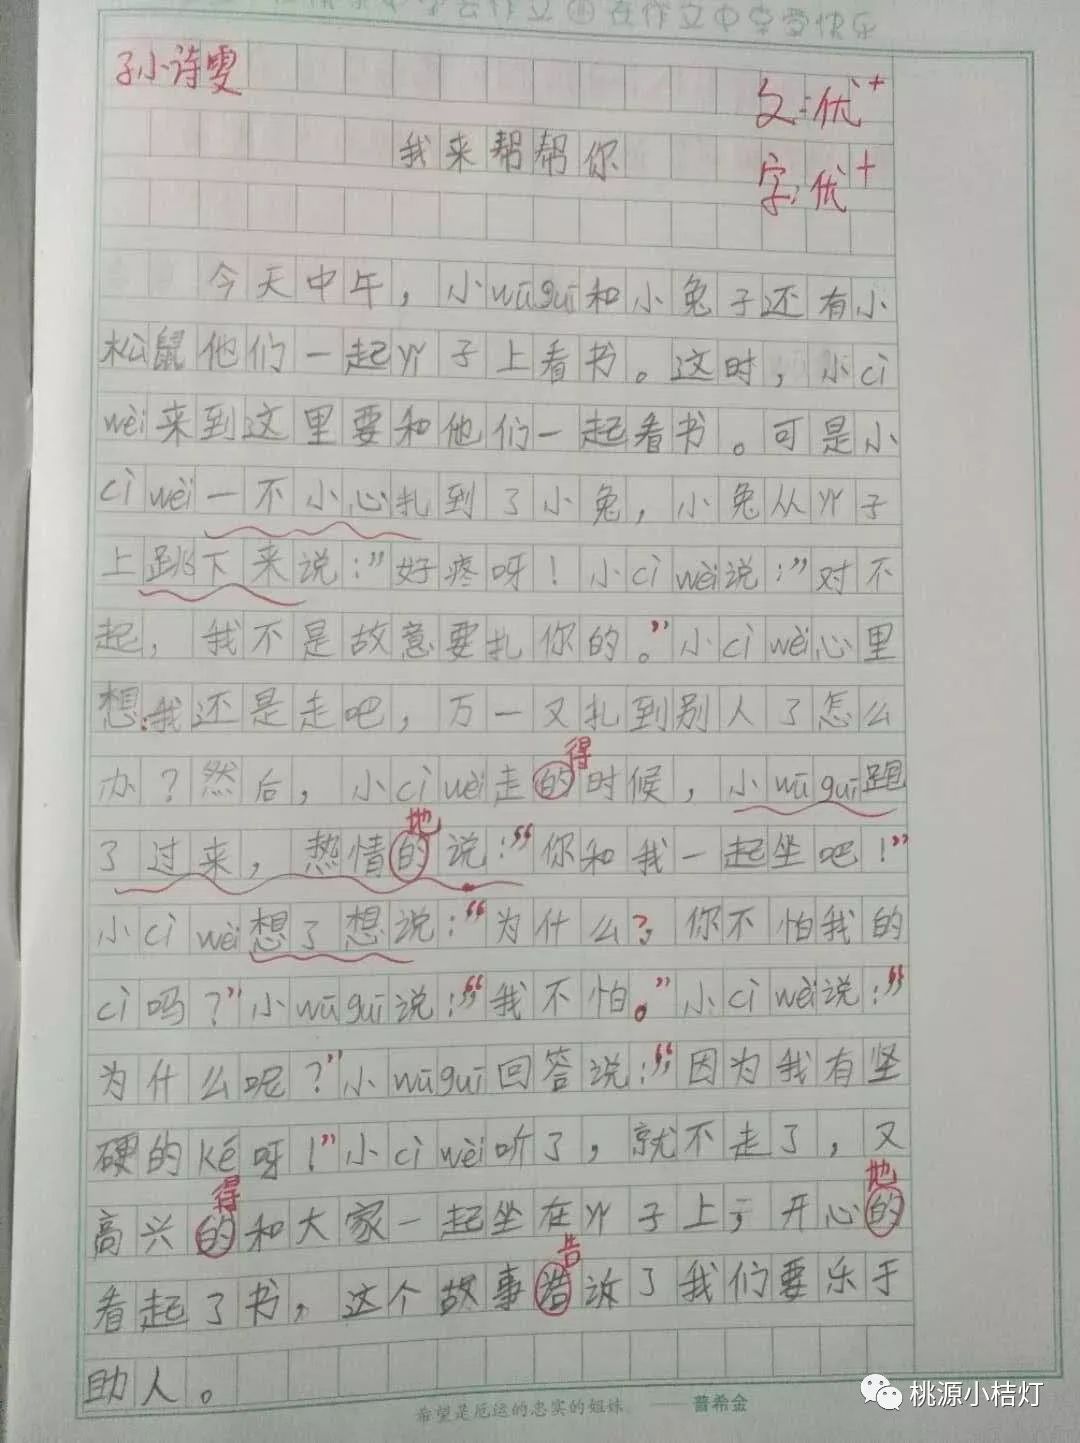 作文④在作文中享受快乐
孙小诗雯
文:优+
我来帮帮你
字:优+
今天中午，小wūguī和小兔子还有小
松鼠他们一起丫子上看书。这时，小cì
wèi来到这里要和他们一起看书。可是小
cìwèi一不小心扎到了小兔，小兔从丫子
上跳下来说：”好疼呀！小cìwèi说：”对不
起，我不是故意要扎你的。”小cìwèi心里
想：我还是走吧，万一又扎到别人了怎么
办？然后，小cìwèi走的得时候，小wūguī跑
了过来，热情的地说：“你和我一起坐吧！”
小cìwèi想了想说：“为什么？你不怕我的
cì吗？”小wūguī说：“我不怕。”小cìwèi说：“
为什么呢？”小wūguī回答说：“因为我有坚
硬的ké呀！”小cìwèi听了，就不走了，又
高兴的得和大家一起坐在丫子上，开心的地
看起了书，这个故事告诉了我们要乐于
助人。
希望是厄运的忠实的姐妹。 ——普希金
桃源小桔灯